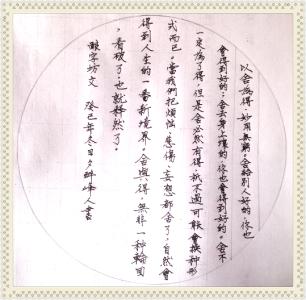 以舍為得，妙用無窮。舍給別人好的，你也
會得到好的；舍去身上壞的，你也會得到好的。舍不
一定為了得，但是舍必然有得，祇不過可能會換种形
式而已。當我們把煩惱、悲傷、妄想都舍了，自然會
得到人生的一番新境界。舍與得，無非一种輪回
，看破了，也就釋然了。
醉字坊文　癸巳年冬日夕醉峰人書